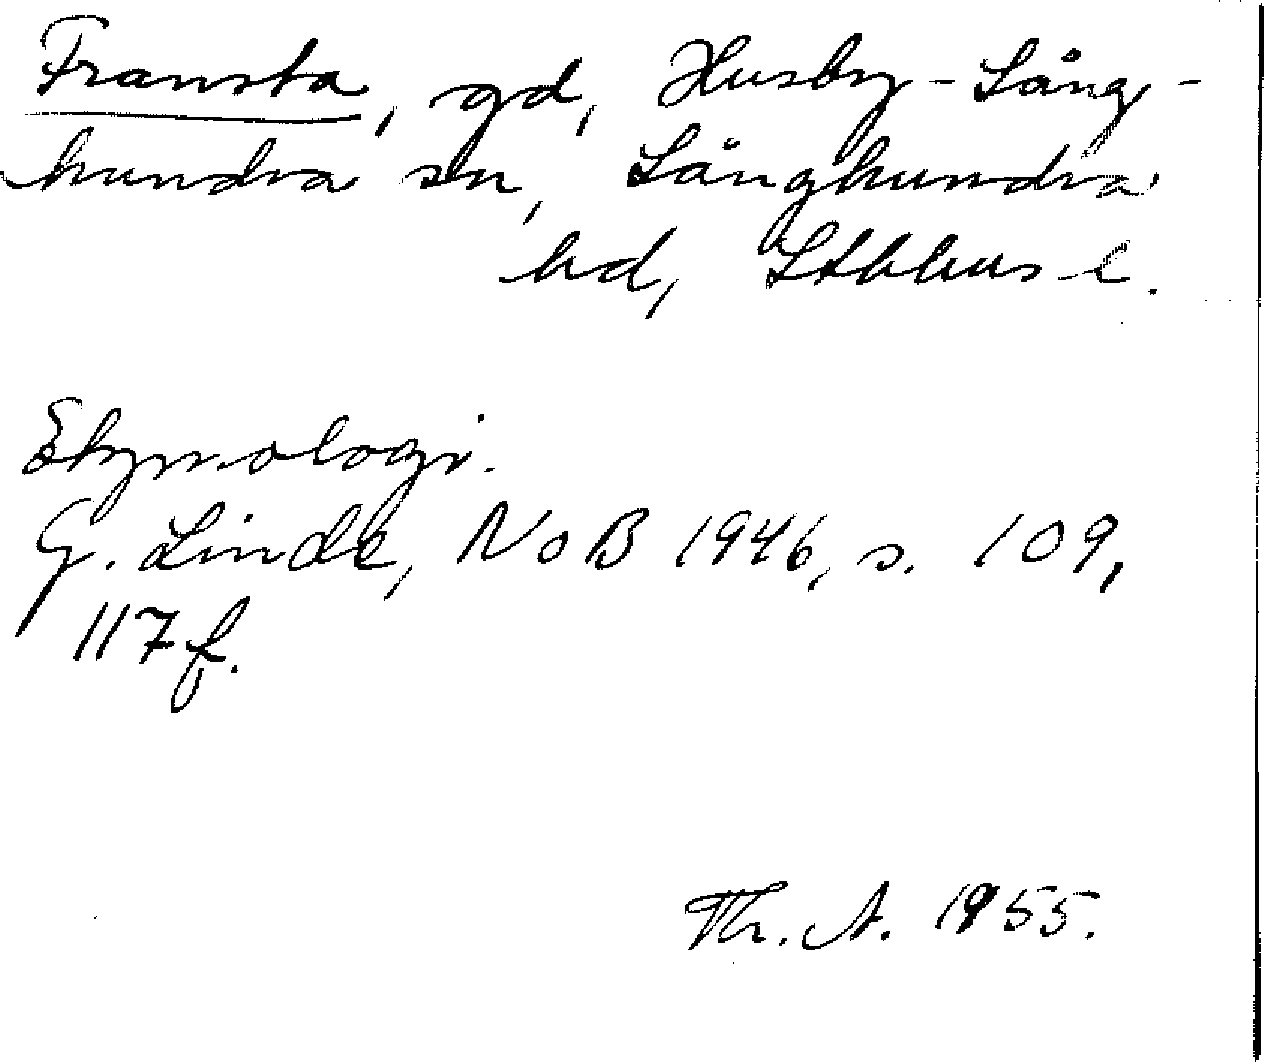 Fransta, gd, Husby-Lång-
hundra sn, Långhundra
hd, Sthlms l.
Etymologi.
G. Linde, NoB 1946, s. 109,
117 f.
Th. A. 1955.